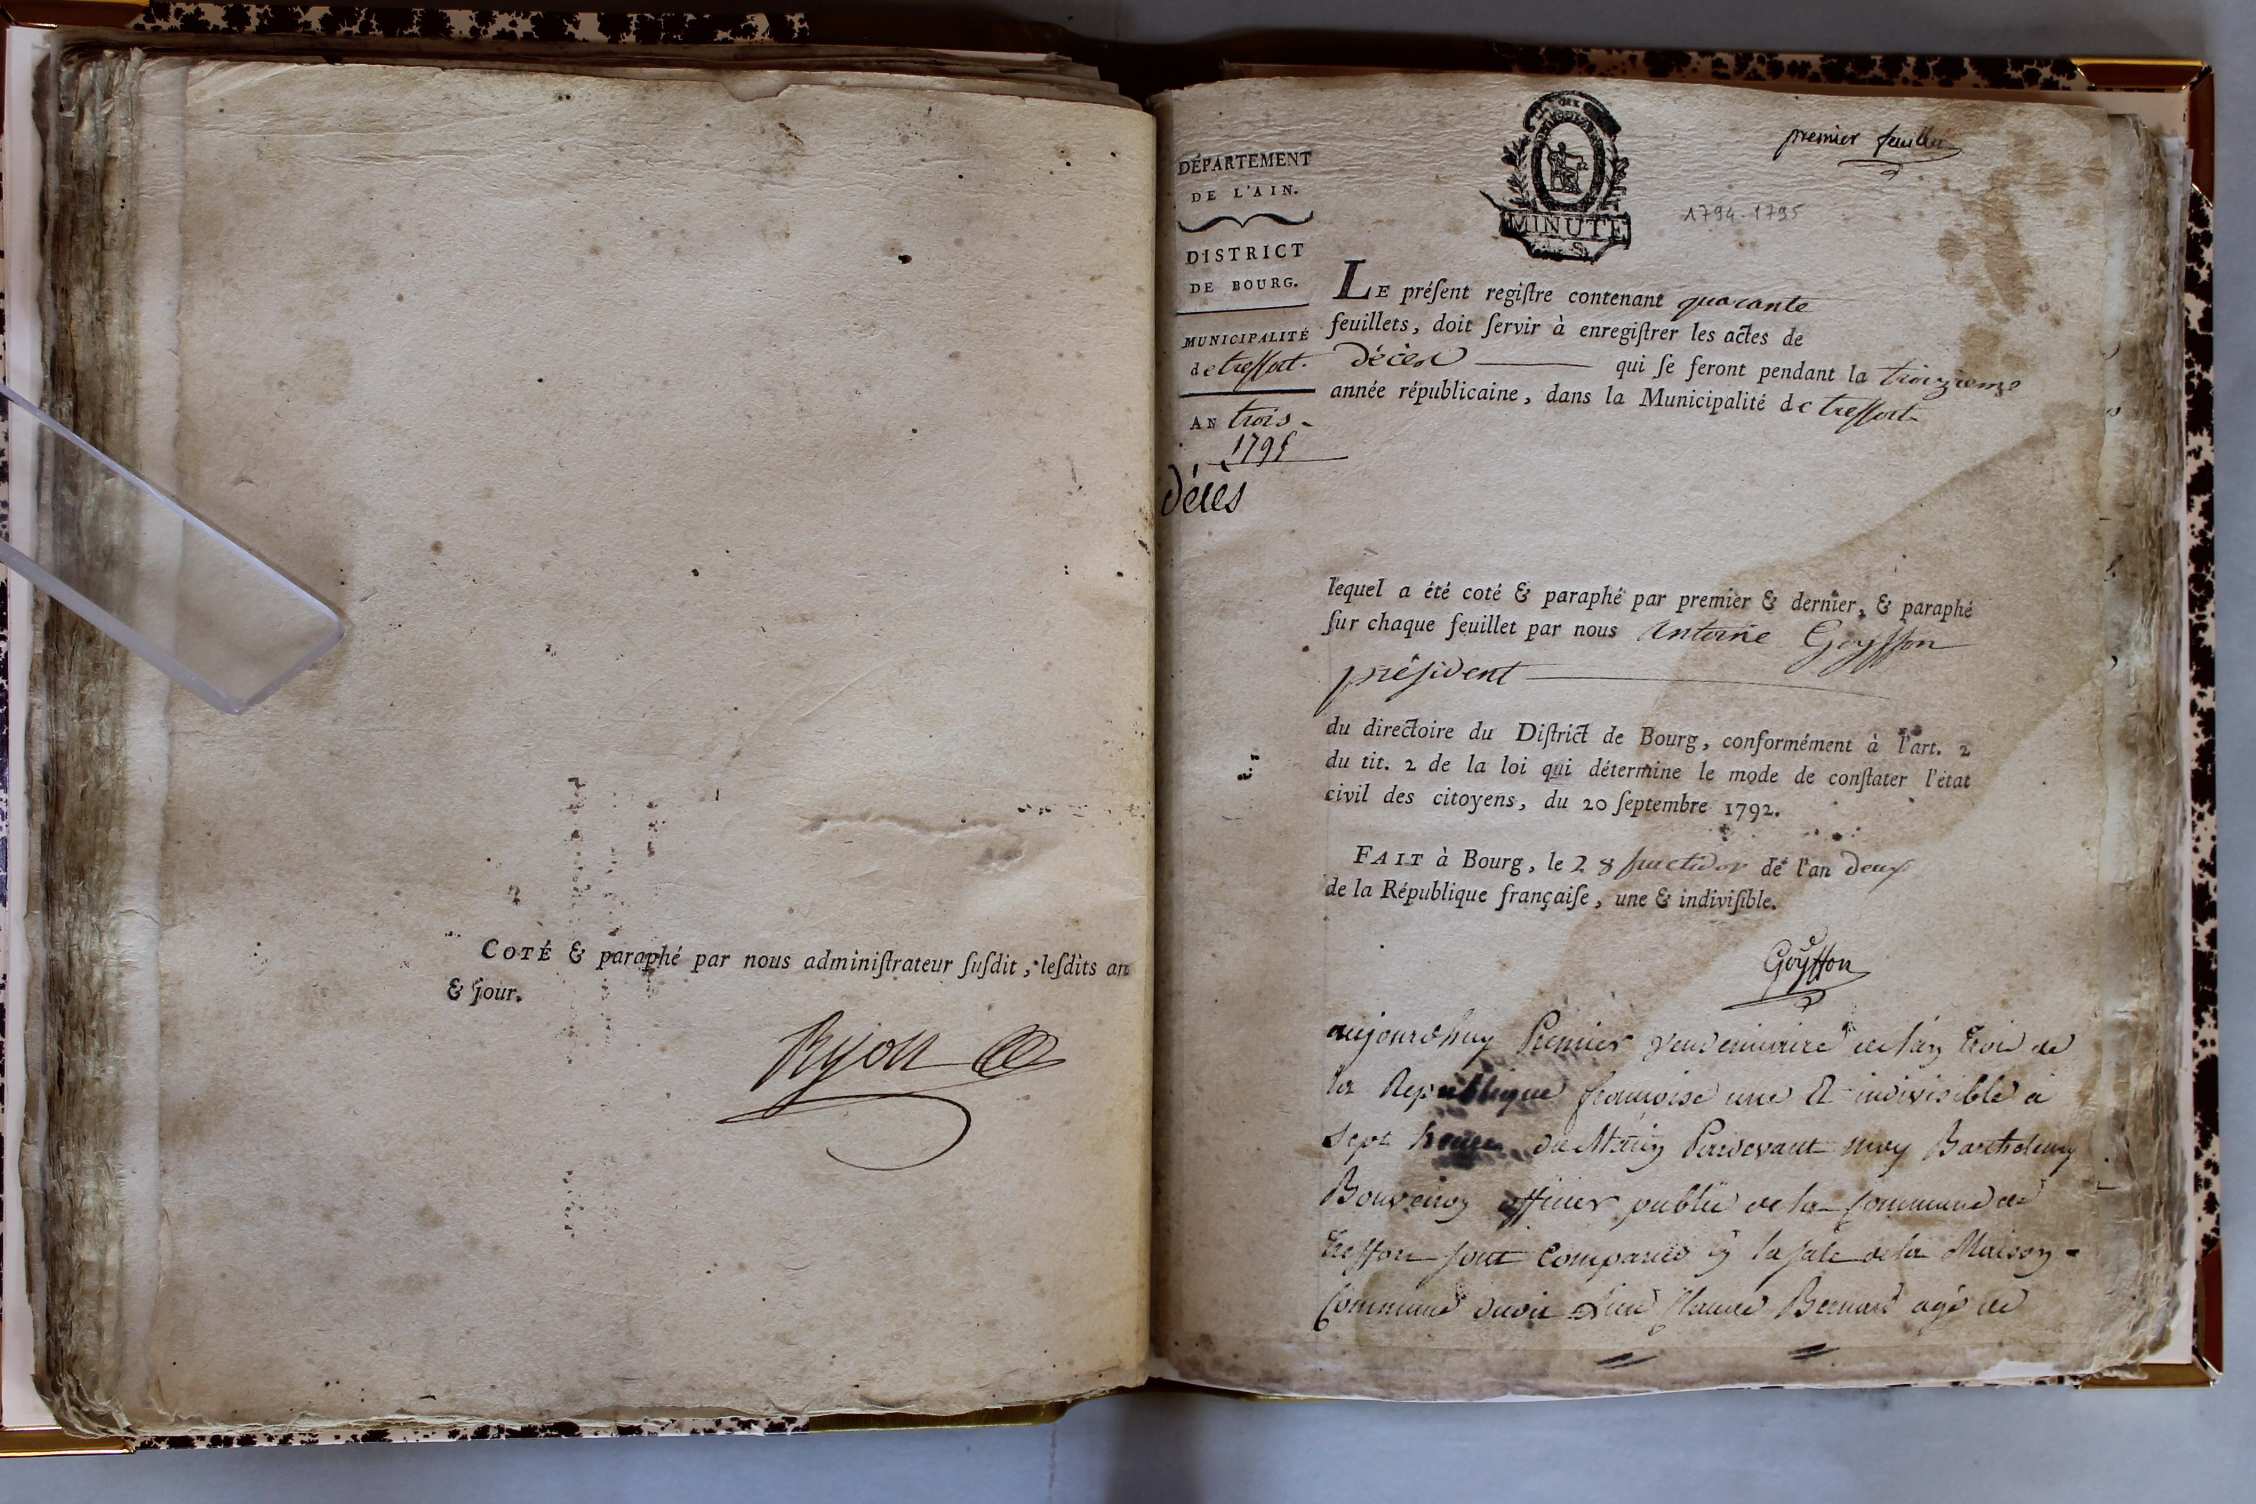 COTÉ & paraphé par nous adminiſtrateur ſuſdit, leſdits an
& jour.
DÉPARTEMENT
DE L'AIN.
DISTRICT
DE BOURG.
MUNICIPALITÉ
de treffort.
AN trois
1795
décès
MINUTE
premier feuillet
1794-1795
LE préſent regiſtre contenant quarante
feuillets, doit ſervir à enregiſtrer les actes de
décès qui ſe feront pendant la troizieme
année républicaine, dans la Municipalité de treffort
lequel a été coté & paraphé par premier & dernier, & paraphé
ſur chaque feuillet par nous Antoine Goyffon
préſident
du directoire du Diſtrict de Bourg, conformément à l'art. 2
du tit. 2 de la loi qui détermine le mode de conſtater l'état
civil des citoyens, du 20 ſeptembre 1792.
FAIT à Bourg, le 28 fructidor de l'an deux
de la République françaiſe, une & indiviſible.
Goyffon
aujourdhuy Premier vendemiaire de lan trois de
la Republique francoise une & indivisible a
sept heures du Matin Pardevant moy Barthelemy
officier public de la commune de
treffort sont comparus la sale de la Maison
Commune Claude Bernard agé de